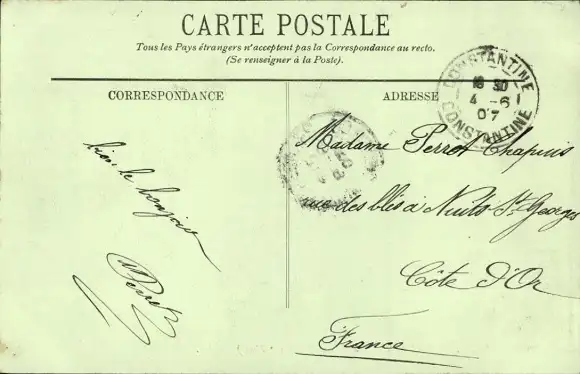 CARTE POSTALE
Tous les Pays étrangers n'acceptent pas la Correspondance au recto.
(Se renseigner à la Poste).
CORRESPONDANCE
ADRESSE
CONSTANTINE
18 30
4 - 6
07
CONSTANTINE
bien le bonjour
Perrot
Madame Perrot Chapuis
rue des blés à Nuits St Georges
Côte d'Or
France